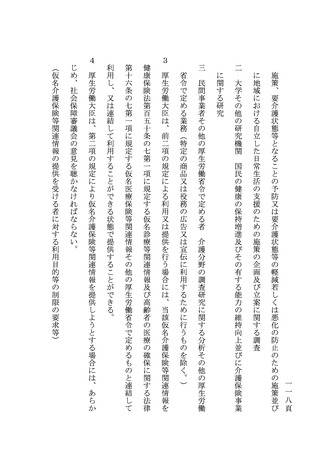 一一八頁
施策、要介護状態等となることの予防又は要介護状態等の軽減若しくは悪化の防止のための施策並び
に地域における自立した日常生活の支援のための施策の企画及び立案に関する調査
二　大学その他の研究機関　国民の健康の保持増進及びその有する能力の維持向上並びに介護保険事業
に関する研究
三　民間事業者その他の厚生労働省令で定める者　介護分野の調査研究に関する分析その他の厚生労働
省令で定める業務（特定の商品又は役務の広告又は宣伝に利用するために行うものを除く。）
３　厚生労働大臣は、前二項の規定による利用又は提供を行う場合には、当該仮名介護保険等関連情報を
健康保険法第百五十条の七第一項に規定する仮名診療等関連情報及び高齢者の医療の確保に関する法律
第十六条の七第一項に規定する仮名医療保険等関連情報その他の厚生労働省令で定めるものと連結して
利用し、又は連結して利用することができる状態で提供することができる。
４　厚生労働大臣は、第二項の規定により仮名介護保険等関連情報を提供しようとする場合には、あらか
じめ、社会保障審議会の意見を聴かなければならない。
（仮名介護保険等関連情報の提供を受ける者に対する利用目的等の制限の要求等）